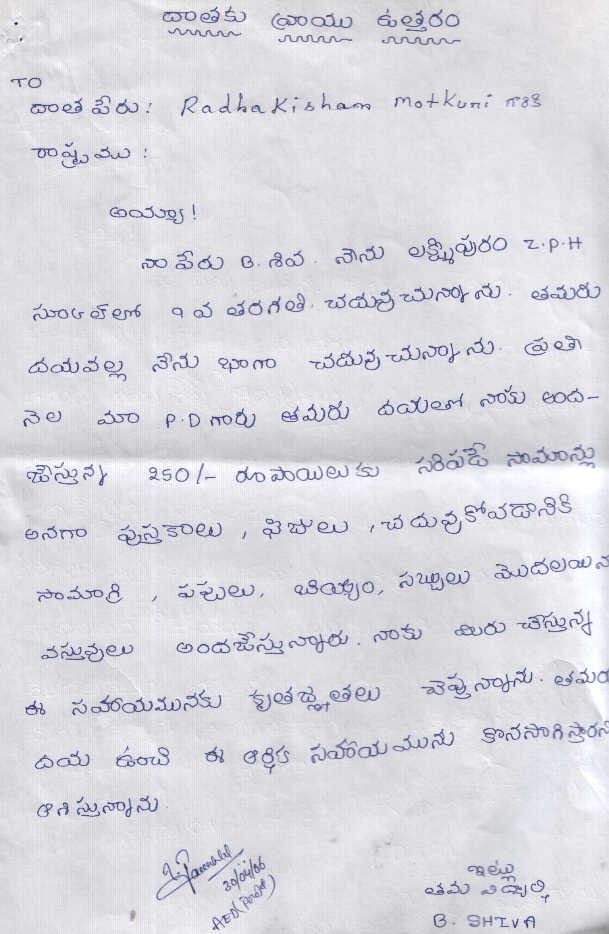 దాతకు వ్రాయు ఉత్తరం
TO
దాత పేరు: RadhaKisham Motkuni గారికి
రాష్ట్రము :
అయ్యా!
నా పేరు B. శివ. నేను లక్ష్మీపురం Z.P.H
స్కూల్ లో 9 వ తరగతి. చదువుచున్నాను. తమరు
దయవల్ల నేను బాగా చదువుచున్నాను. ప్రతి
నెల మా P.D గారు తమరు దయతో నాకు అంద-
జేస్తున్న 250/- రూపాయిలుకు సరిపడే సామాన్లు
అనగా పుస్తకాలు, ఫీజులు, చదువుకోవడానికి
సామాగ్రి, పప్పులు, బియ్యం, సబ్బులు మొదలయిన
వస్తువులు అందజేస్తున్నారు. నాకు మీరు చేస్తున్న
ఈ సహాయమునకు కృతజ్ఞతలు చెప్తున్నాను. తమరు
దయ ఉంచి ఈ ఆర్థిక సహాయమును కొనసాగిస్తారని
ఆశిస్తున్నాను.
30/04/06
ఇట్లు
తమ విద్యార్థి
B. SHIVA